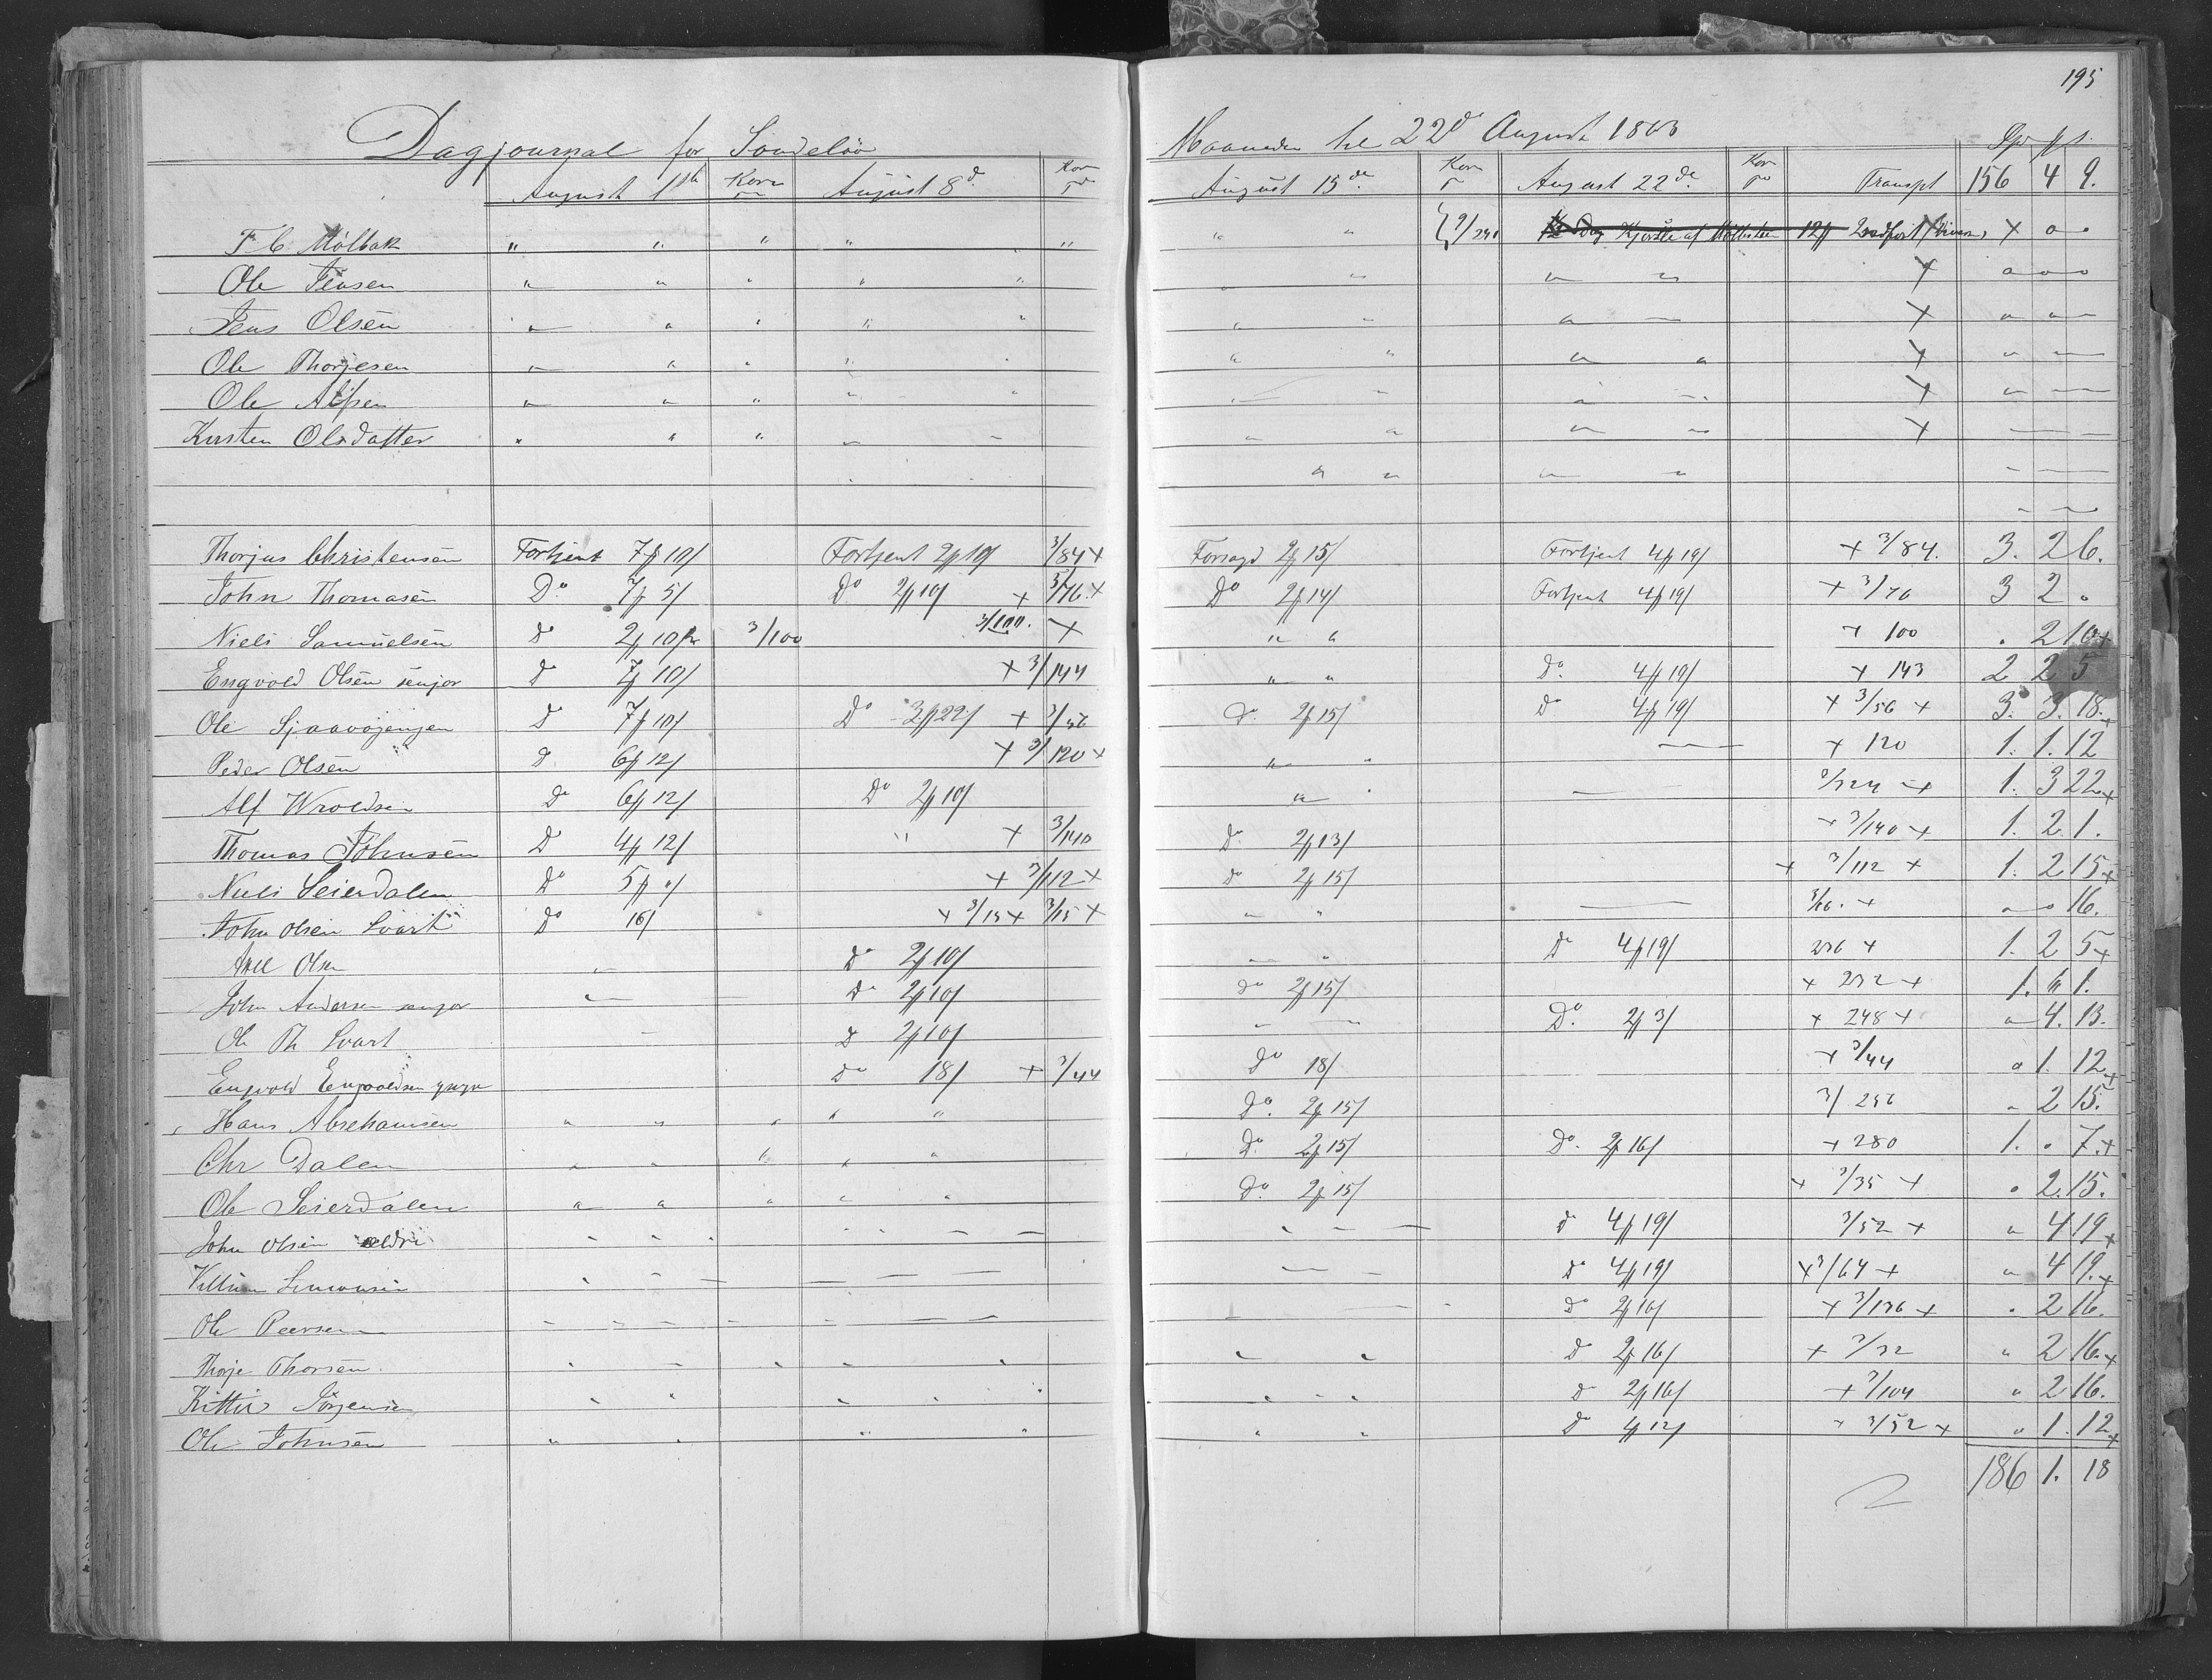 195
Dagjournal for Sondeløv Maaneden til 22d August 1863
Spd
August 1ste Korn August 8d Korn August 15de Korn August 22de Korn Transpt 156 4 9.
F C Mölbak " " " " " " " 12 Dag Kjørsel af 12 x
Ole Jensen " " " " " " " " " x " " "
Jens Olsen " " " " " " " " x " " "
Ole Thorjesen " " " " " " " " x " "
Ole Alfsen " " " " " " " x " "
Kirsten Olsdatter " " " " " " " x
Thorjus Christensen Fortjent 7 10/ Fortjent 2 10/ 3/84 x Forsagd 2 15/ Fortjent 4 19/ x 3/84. 3. 2 6.
John Thomasen Do 7 5/ Do 2 10/ x 3/76 x Do 2 14/ Fortjent 4 19/ x 3/76 3 2 "
Niels Samuelsen D 2 10 3/100 3/100. x " " x 100 " 2 10 x
Engvold Olsen senjor D 7 10/ x 3/144 " " Do 4 19/ x 143 2 2 5
Ole Sjaavøjenjen D 7 10/ Do 3 22/ x 3/56 D. 2 15/ D 4 19/ x 3/56 x 3. 3. 18. x
Peder Olsen D 6 12/ x 3/120 x " x 120 1. 1. 12
Alf Wroldsen Do 6 12/ Do 2 10/ " 3/324 x 1. 3 22 x
Thomas Johnsen D 4 12/ " x 3/140 Do 2 13/ x 3/140 x 1. 2 1.
Niels Seierdalen Do 5 "/ x 3/112 x Do 2 15/ x 3/112 x 1. 2 15 x
John Olsen Svart Do 16/ x 3/15 x 3/15 x " " 3/16. x " " 16.
Axel Olsen " D 2 10/ " " D 4 19/ 236 x 1. 2 5 x
John Andersen senjor " D 2 10/ Do 2 15/ x 232 x 1. " 1.
Ole Th Svart D 2 10/ Do 2 3/ x 248 x " 4. 13.
Engvold Engvoldsen Do 18/ x 3/44 Do 18/ x 3/44 " 1. 12 x
Hans Abrehamsen " " " " " Do. 2 15/ 3/256 " 2 15.
Chr Dalen " " " " " D. 2 15/ Do. 2 16/ x 280 1. " 7. x
Ole Seierdalen " " " " " Do. 2 15/ x 3/35 x " 2. 15.
John Olsen eldri D 4 19/ 3/52 x " 4 19 x
Villum Simonsen D 4 19/ x 3/64 x " 4 19. x
Ole Peersen Do 2 16/ x 3/136 x " 2 16.
Thorje Thorsen D 2 16/ x 3/32 " 2 16. x
Kittil Jörgensen D 2 16/ x 3/104 " 2 16.
Ole Johnsen Do 1 12/ x 3/52 x " 1. 12 x
186 1. 18